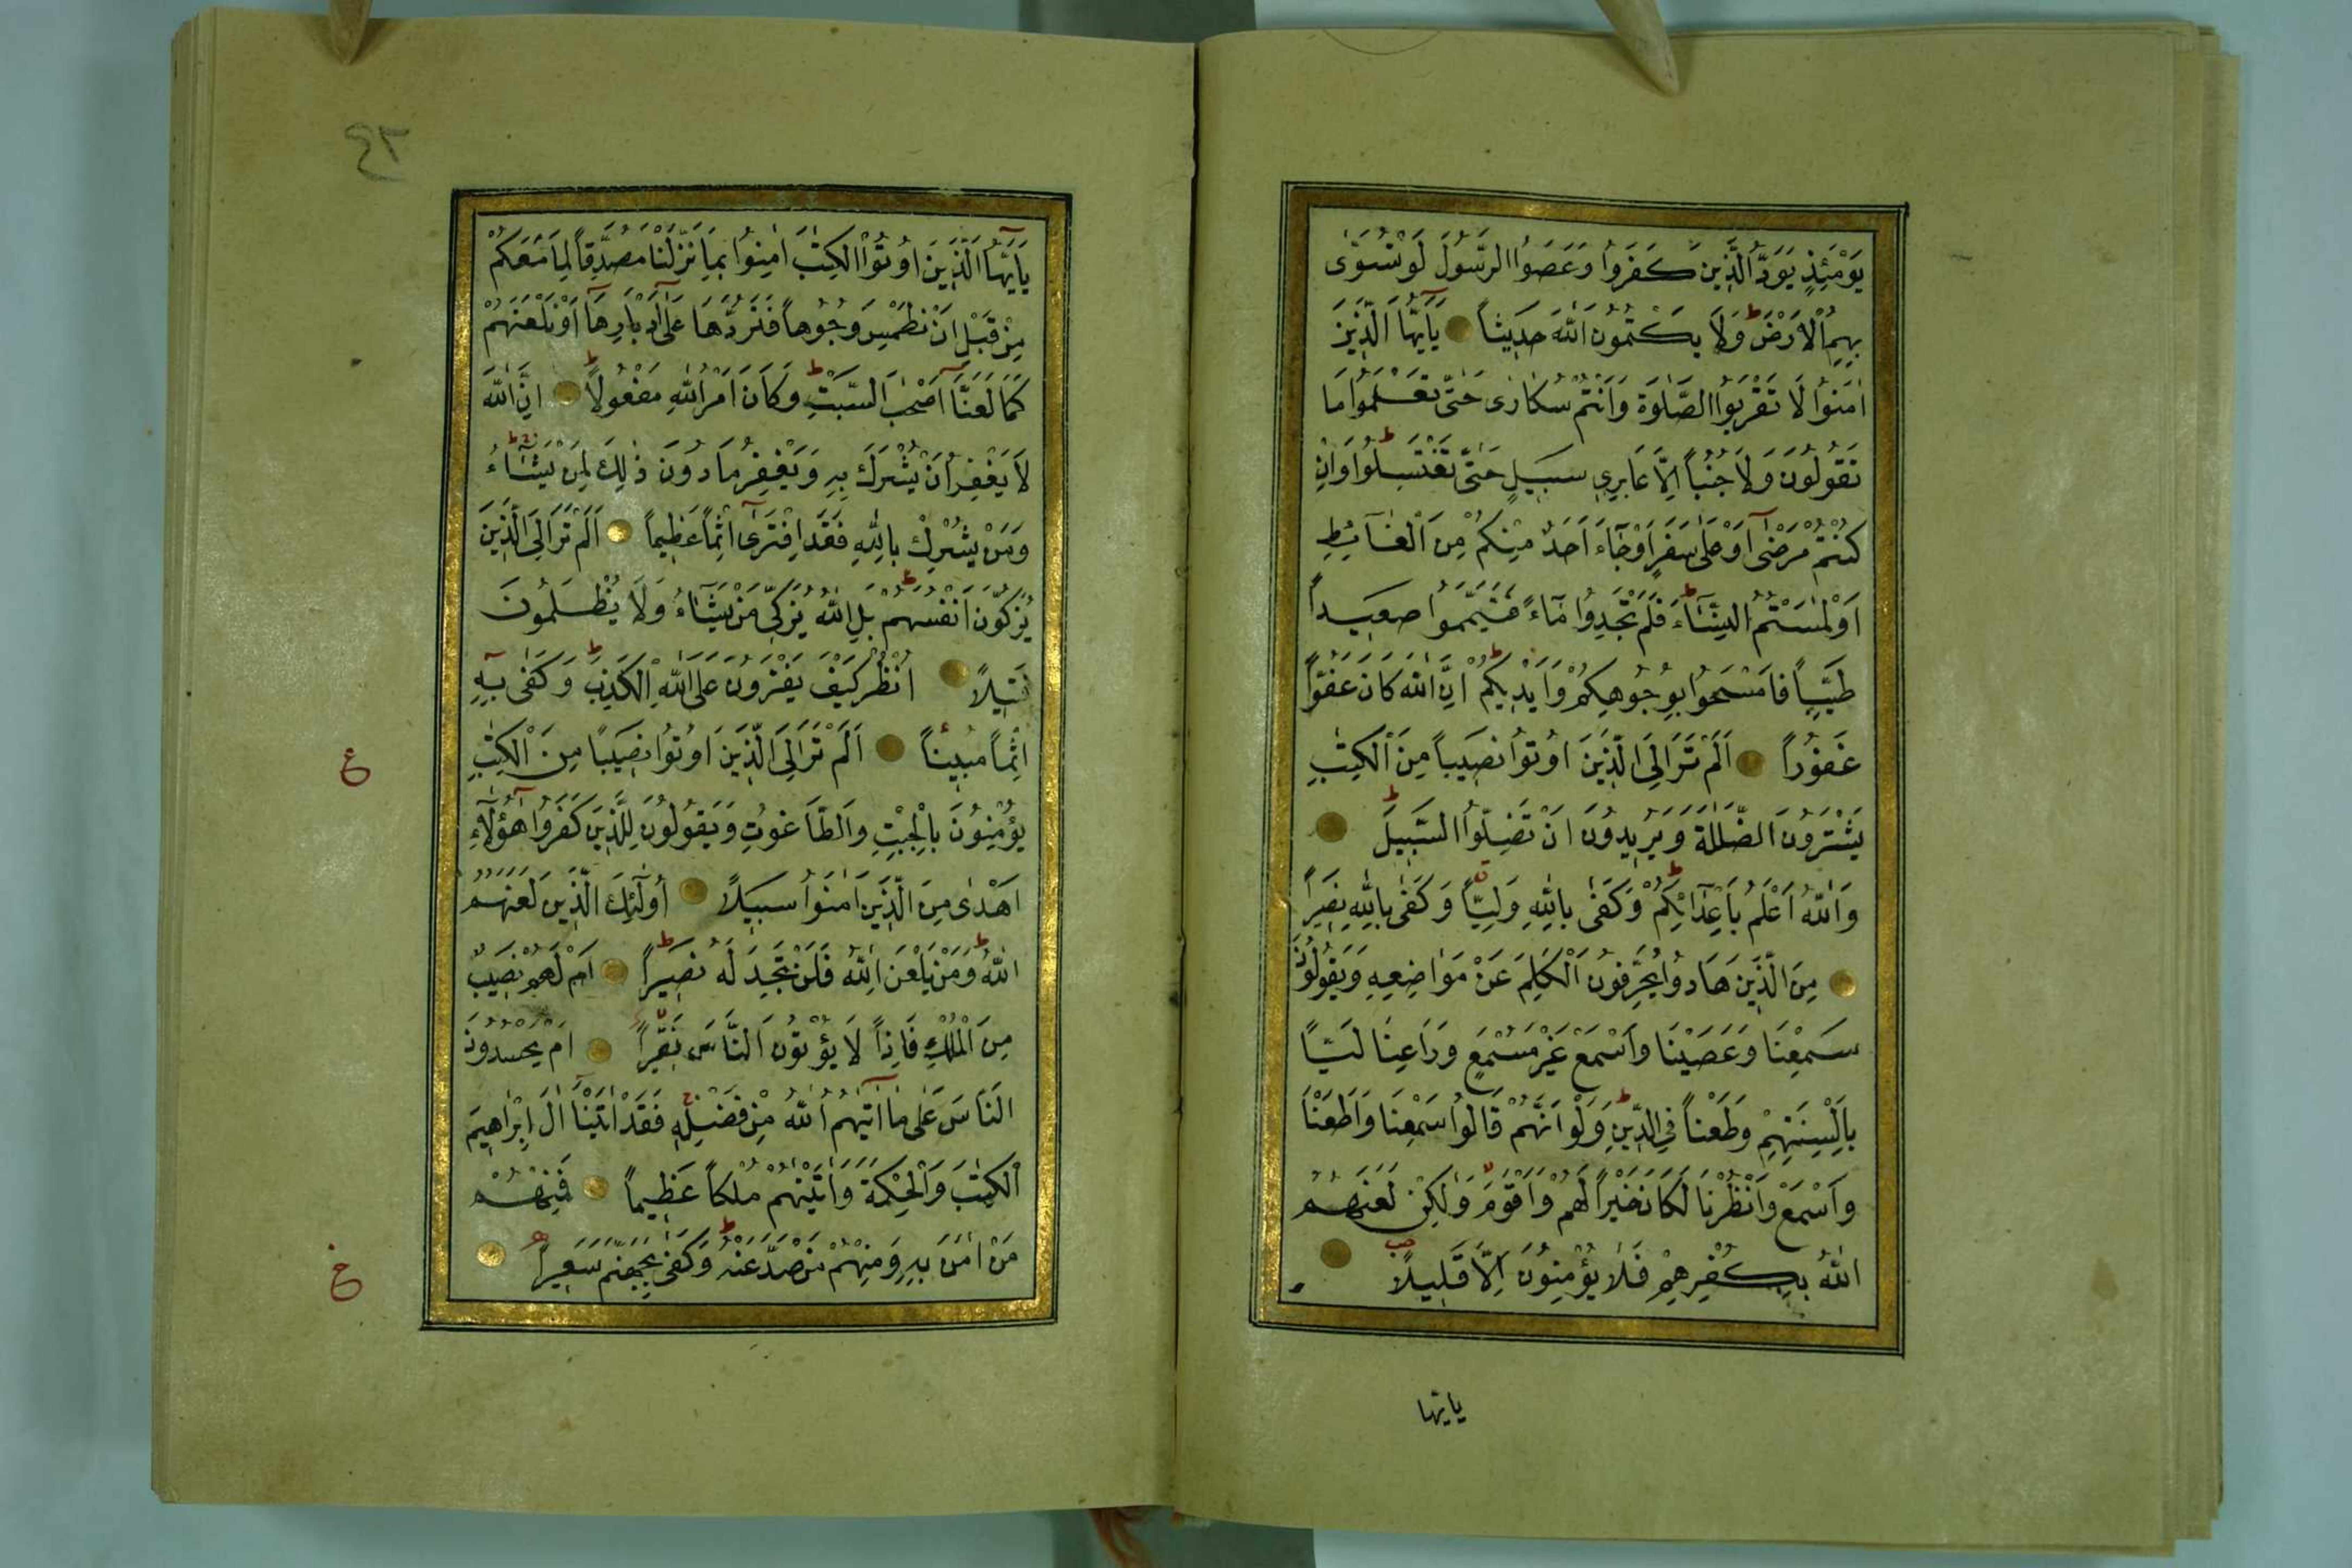 يَوْمَئِذٍ يَوَدُّ الَّذِينَ كَفَرُوا وَعَصَوُا الرَّسُولَ لَوْ تُسَوّٰى
بِهِمُ الْاَرْضُ ط وَلَا يَكْتُمُونَ اللّٰهَ حَدِيثاً يَآاَيُّهَا الَّذِينَ
اٰمَنُوا لَا تَقْرَبُوا الصَّلٰوةَ وَاَنْتُمْ سُكَارٰى حَتّٰى تَعْلَمُوا مَا
تَقُولُونَ وَلَا جُنُباً اِلَّا عَابِرِي سَبِيلٍ حَتّٰى تَغْتَسِلُوا ط وَاِنْ
كُنْتُمْ مَرْضٰى اَوْ عَلٰى سَفَرٍ اَوْ جَآءَ اَحَدٌ مِنْكُمْ مِنَ الْغَآئِطِ
اَوْ لٰمَسْتُمُ النِّسَآءَ فَلَمْ تَجِدُوا مَآءً فَتَيَمَّمُوا صَعِيداً
طَيِّباً فَامْسَحُوا بِوُجُوهِكُمْ وَاَيْدِيكُمْ ط اِنَّ اللّٰهَ كَانَ عَفُوّاً
غَفُوراً اَلَمْ تَرَ اِلَى الَّذِينَ اُوتُوا نَصِيباً مِنَ الْكِتٰبِ
يَشْتَرُونَ الضَّلٰلَةَ وَيُرِيدُونَ اَنْ تَضِلُّوا السَّبِيلَ ط
وَاللّٰهُ اَعْلَمُ بِاَعْدَآئِكُمْ ط وَكَفٰى بِاللّٰهِ وَلِيّاً وَكَفٰى بِاللّٰهِ نَصِيراً
مِنَ الَّذِينَ هَادُوا يُحَرِّفُونَ الْكَلِمَ عَنْ مَوَاضِعِهِ وَيَقُولُونَ
سَمِعْنَا وَعَصَيْنَا وَاسْمَعْ غَيْرَ مُسْمَعٍ وَرَاعِنَا لَيّاً
بِاَلْسِنَتِهِمْ وَطَعْناً فِي الدِّينِ ط وَلَوْ اَنَّهُمْ قَالُوا سَمِعْنَا وَاَطَعْنَا
وَاسْمَعْ وَانْظُرْنَا لَكَانَ خَيْراً لَهُمْ وَاَقْوَمَ وَلٰكِنْ لَعَنَهُمُ
اللّٰهُ بِكُفْرِهِمْ فَلَا يُؤْمِنُونَ اِلَّا قَلِيلاً
يايها
٤٣
يَآاَيُّهَا الَّذِينَ اُوتُوا الْكِتٰبَ اٰمِنُوا بِمَا نَزَّلْنَا مُصَدِّقاً لِمَا مَعَكُمْ
مِنْ قَبْلِ اَنْ نَطْمِسَ وُجُوهاً فَنَرُدَّهَا عَلٰى اَدْبَارِهَا اَوْ نَلْعَنَهُمْ
كَمَا لَعَنَّا اَصْحٰبَ السَّبْتِ ط وَكَانَ اَمْرُ اللّٰهِ مَفْعُولاً ط اِنَّ اللّٰهَ
لَا يَغْفِرُ اَنْ يُشْرَكَ بِهِ وَيَغْفِرُ مَا دُونَ ذٰلِكَ لِمَنْ يَشَآءُ ط
وَمَنْ يُشْرِكْ بِاللّٰهِ فَقَدِ افْتَرٰى اِثْماً عَظِيماً اَلَمْ تَرَ اِلَى الَّذِينَ
يُزَكُّونَ اَنْفُسَهُمْ ط بَلِ اللّٰهُ يُزَكِّي مَنْ يَشَآءُ وَلَا يُظْلَمُونَ
فَتِيلاً اُنْظُرْ كَيْفَ يَفْتَرُونَ عَلَى اللّٰهِ الْكَذِبَ ط وَكَفٰى بِهِ
اِثْماً مُبِيناً اَلَمْ تَرَ اِلَى الَّذِينَ اُوتُوا نَصِيباً مِنَ الْكِتٰبِ
ع
يُؤْمِنُونَ بِالْجِبْتِ وَالطَّاغُوتِ وَيَقُولُونَ لِلَّذِينَ كَفَرُوا هٰؤُلَآءِ
اَهْدٰى مِنَ الَّذِينَ اٰمَنُوا سَبِيلاً اُولٰٓئِكَ الَّذِينَ لَعَنَهُمُ
اللّٰهُ ط وَمَنْ يَلْعَنِ اللّٰهُ فَلَنْ تَجِدَ لَهُ نَصِيراً ط اَمْ لَهُمْ نَصِيبٌ
مِنَ الْمُلْكِ فَاِذاً لَا يُؤْتُونَ النَّاسَ نَقِيراً اَمْ يَحْسُدُونَ
النَّاسَ عَلٰى مَا اٰتٰيهُمُ اللّٰهُ مِنْ فَضْلِهِ فَقَدْ اٰتَيْنَا اٰلَ اِبْرٰاهِيمَ
الْكِتٰبَ وَالْحِكْمَةَ وَاٰتَيْنٰهُمْ مُلْكاً عَظِيماً فَمِنْهُمْ
مَنْ اٰمَنَ بِهِ وَمِنْهُمْ مَنْ صَدَّ عَنْهُ ط وَكَفٰى بِجَهَنَّمَ سَعِيراً